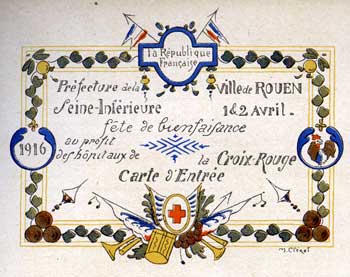 La République
Française
Préfecture de la Ville de ROUEN
Seine-Inférieure 1 & 2 Avril.
fête de bienfaisance
au profit
des hôpitaux de la Croix-Rouge
Carte d'Entrée
1916